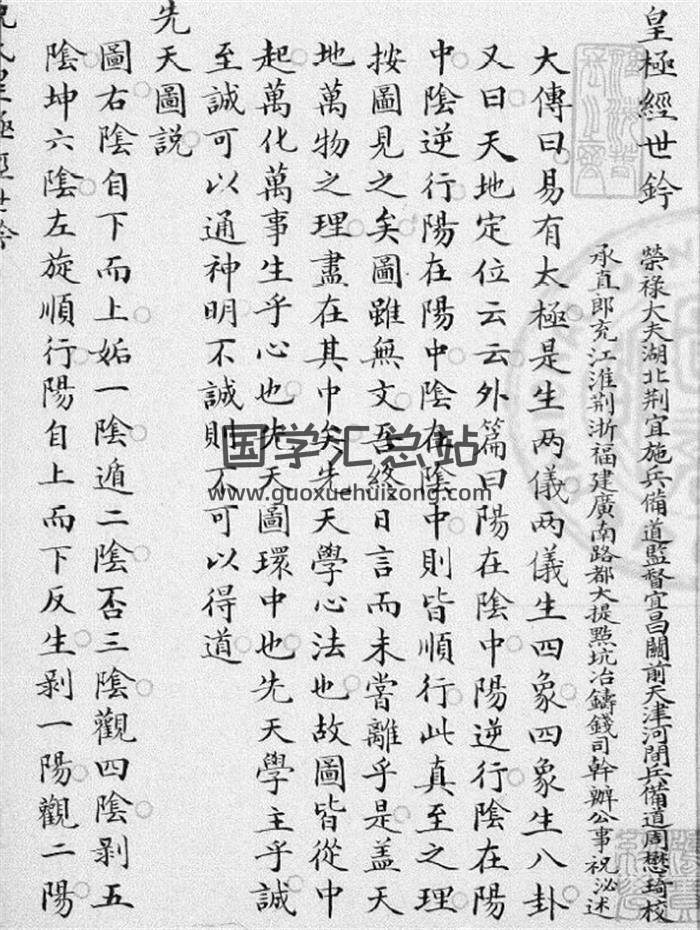 皇極經世鈐
榮祿大夫湖北荆宜施兵備道監督宜昌關前天津河間兵備道周懋琦校
承直郎充江淮荆浙福建廣南路都大提點坑冶鑄錢司幹辦公事祝泌述
大傳曰易有太極是生两儀两儀生四象四象生八卦
又曰天地定位云云外篇曰陽在陰中陽逆行陰在陽
中陰逆行陽在陽中陰在陰中則皆順行此真至之理
按圖見之矣圖雖無文吾終日言而未嘗離乎是盖天
地萬物之理盡在其中矣先天學心法也故圖皆從中
起萬化萬事生乎心也先天圖環中也先天學主乎誠
至誠可以通神明不誠則不可以得道
先天圖説
圖右陰自下而上姤一陰遁二陰否三陰觀四陰剥五
陰坤六陰左旋順行陽自上而下反生剥一陽觀二陽
皇極經世
国学汇总站
www.guoxuehuizong.com